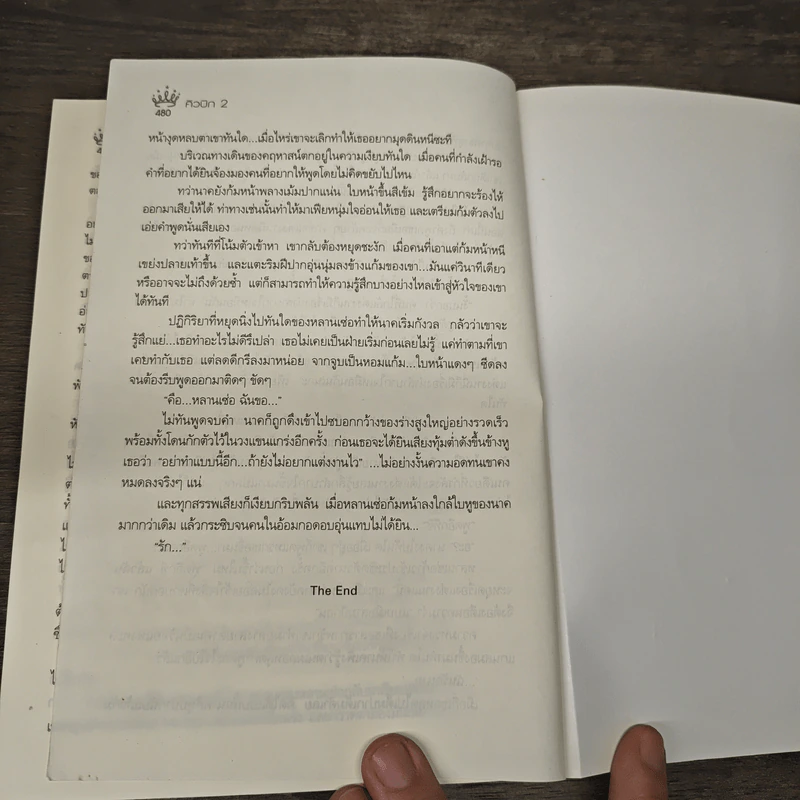 480
คิวบิก 2
หน้างุดหลบตาเขาทันใด...เมื่อไหร่เขาจะเลิกทำให้เธออยากมุดดินหนีซะที
บริเวณทางเดินของคฤหาสน์ตกอยู่ในความเงียบทันใด เมื่อคนที่กำลังเฝ้ารอ
คำที่อยากได้ยินจ้องมองคนที่อยากให้พูดโดยไม่คิดขยับไปไหน
ทว่านาคยังก้มหน้าพลางเม้มปากแน่น ใบหน้าขึ้นสีเข้ม รู้สึกอยากจะร้องไห้
ออกมาเสียให้ได้ ท่าทางเช่นนั้นทำให้มาเฟียหนุ่มใจอ่อนให้เธอ และเตรียมก้มตัวลงไป
เอ่ยคำพูดนั่นเสียเอง
ทว่าทันทีที่โน้มตัวเข้าหา เขากลับต้องหยุดชะงัก เมื่อคนที่เอาแต่ก้มหน้าหนี
เขย่งปลายเท้าขึ้น และแตะริมฝีปากอุ่นนุ่มลงข้างแก้มของเขา...มันแค่วินาทีเดียว
หรืออาจจะไม่ถึงด้วยซ้ำ แต่ก็สามารถทำให้ความรู้สึกบางอย่างไหลเข้าสู่หัวใจของเขา
ได้ทันที
ปฏิกิริยาที่หยุดนิ่งไปทันใดของหลานเซ่อทำให้นาคเริ่มกังวล กลัวว่าเขาจะ
รู้สึกแย่...เธอทำอะไรไม่ดีรึเปล่า เธอไม่เคยเป็นฝ่ายเริ่มก่อนเลยไม่รู้ แค่ทำตามที่เขา
เคยทำกับเธอ แต่ลดดีกรีลงมาหน่อย จากจูบเป็นหอมแก้ม...ใบหน้าแดงๆ ซีดลง
จนต้องรีบพูดออกมาติดๆ ขัดๆ
“คือ...หลานเซ่อ ฉันขอ...”
ไม่ทันพูดจบคำ นาคก็ถูกดึงเข้าไปซบอกกว้างของร่างสูงใหญ่อย่างรวดเร็ว
พร้อมทั้งโดนกักตัวไว้ในวงแขนแกร่งอีกครั้ง ก่อนเธอจะได้ยินเสียงทุ้มต่ำดังขึ้นข้างหู
เธอว่า “อย่าทำแบบนี้อีก...ถ้ายังไม่อยากแต่งงานไว” ...ไม่อย่างงั้นความอดทนเขาคง
หมดลงจริงๆ แน่
และทุกสรรพเสียงก็เงียบกริบพลัน เมื่อหลานเซ่อก้มหน้าลงใกล้ใบหูของนาค
มากกว่าเดิม แล้วกระซิบจนคนในอ้อมกอดอบอุ่นแทบไม่ได้ยิน...
“รัก...”
The End